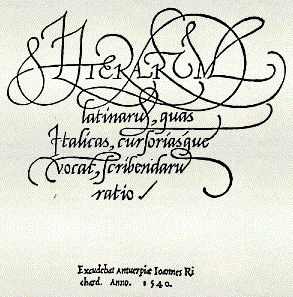 LITERARUM
latinarũ, quas
Italicas, cursoriasque
vocãt, scribendarũ
ratio
Excudebat Antuerpiæ Ioannes Ri
chard. Anno. 1540.